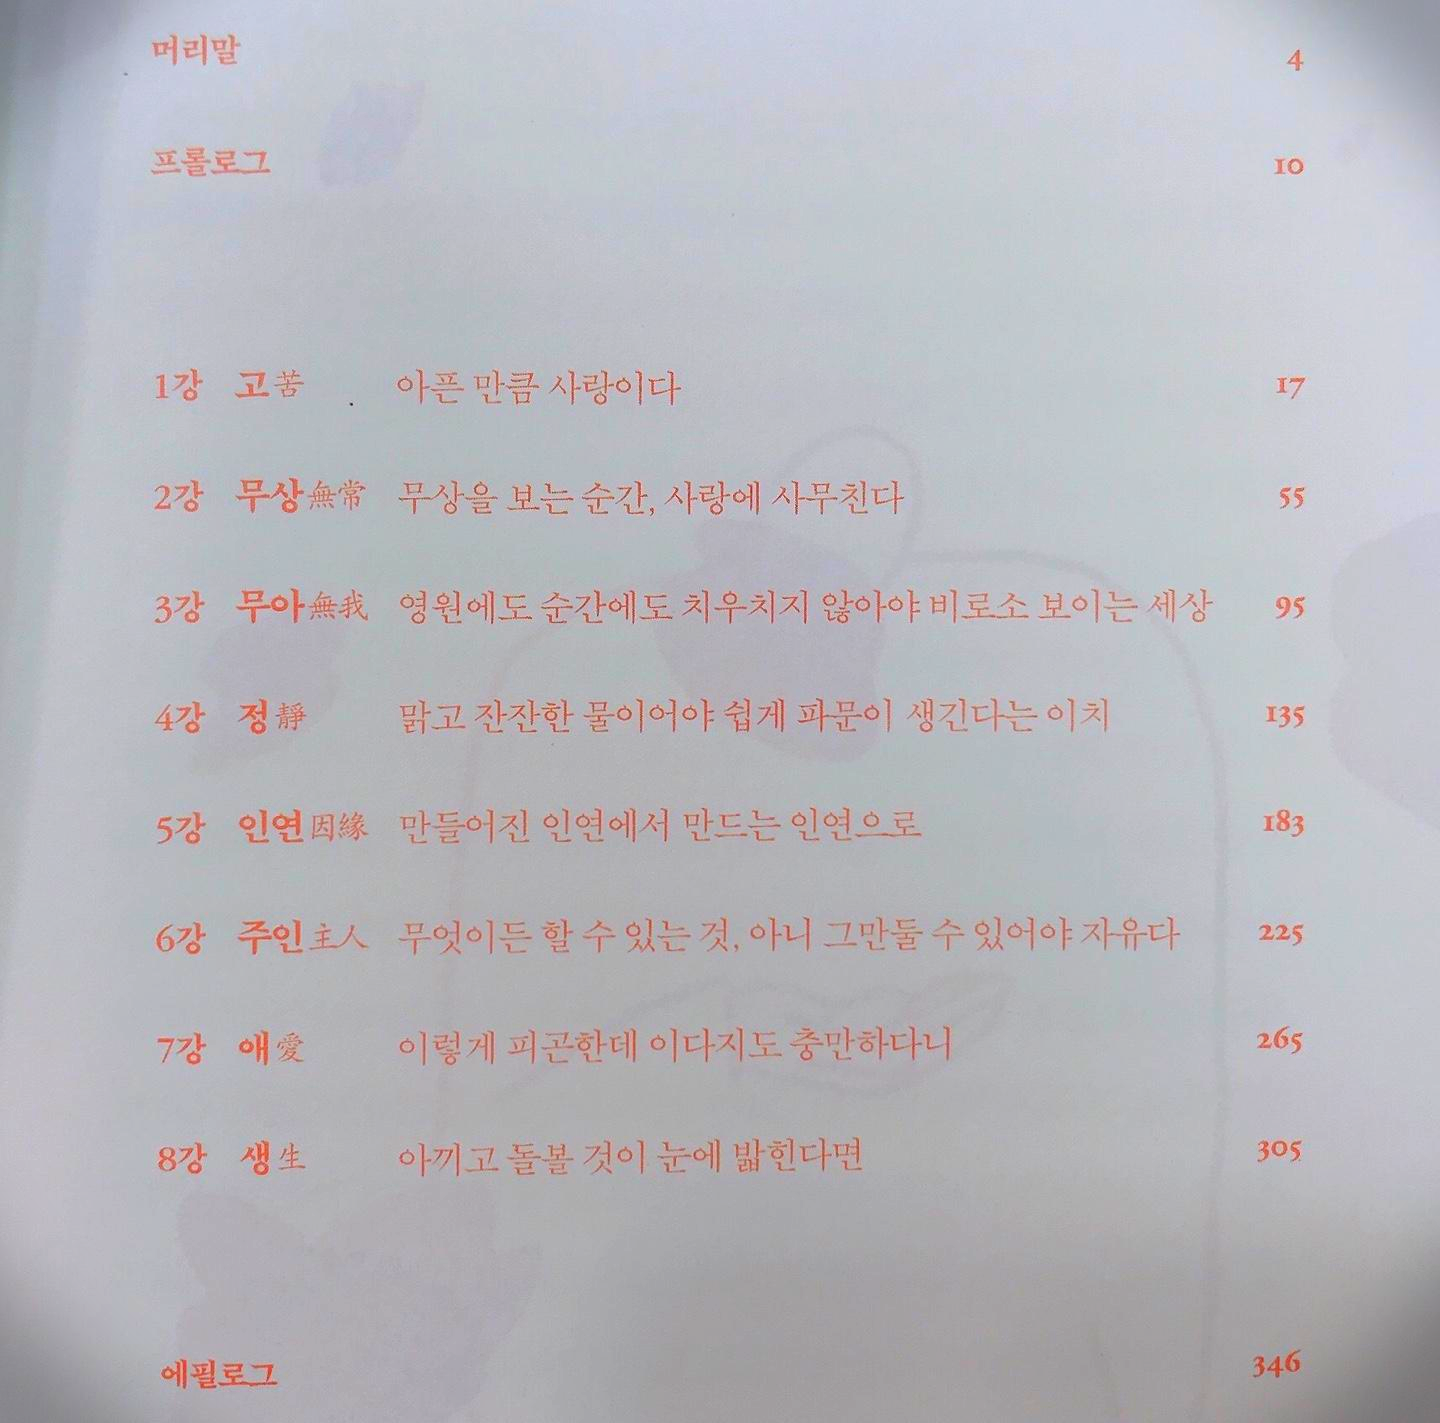 머리말 4
프롤로그 10
1강 고苦 아픈 만큼 사랑이다 17
2강 무상無常 무상을 보는 순간, 사랑에 사무친다 55
3강 무아無我 영원에도 순간에도 치우치지 않아야 비로소 보이는 세상 95
4강 정靜 맑고 잔잔한 물이어야 쉽게 파문이 생긴다는 이치 135
5강 인연因緣 만들어진 인연에서 만드는 인연으로 183
6강 주인主人 무엇이든 할 수 있는 것, 아니 그만둘 수 있어야 자유다 225
7강 애愛 이렇게 피곤한데 이다지도 충만하다니 265
8강 생生 아끼고 돌볼 것이 눈에 밟힌다면 305
에필로그 346